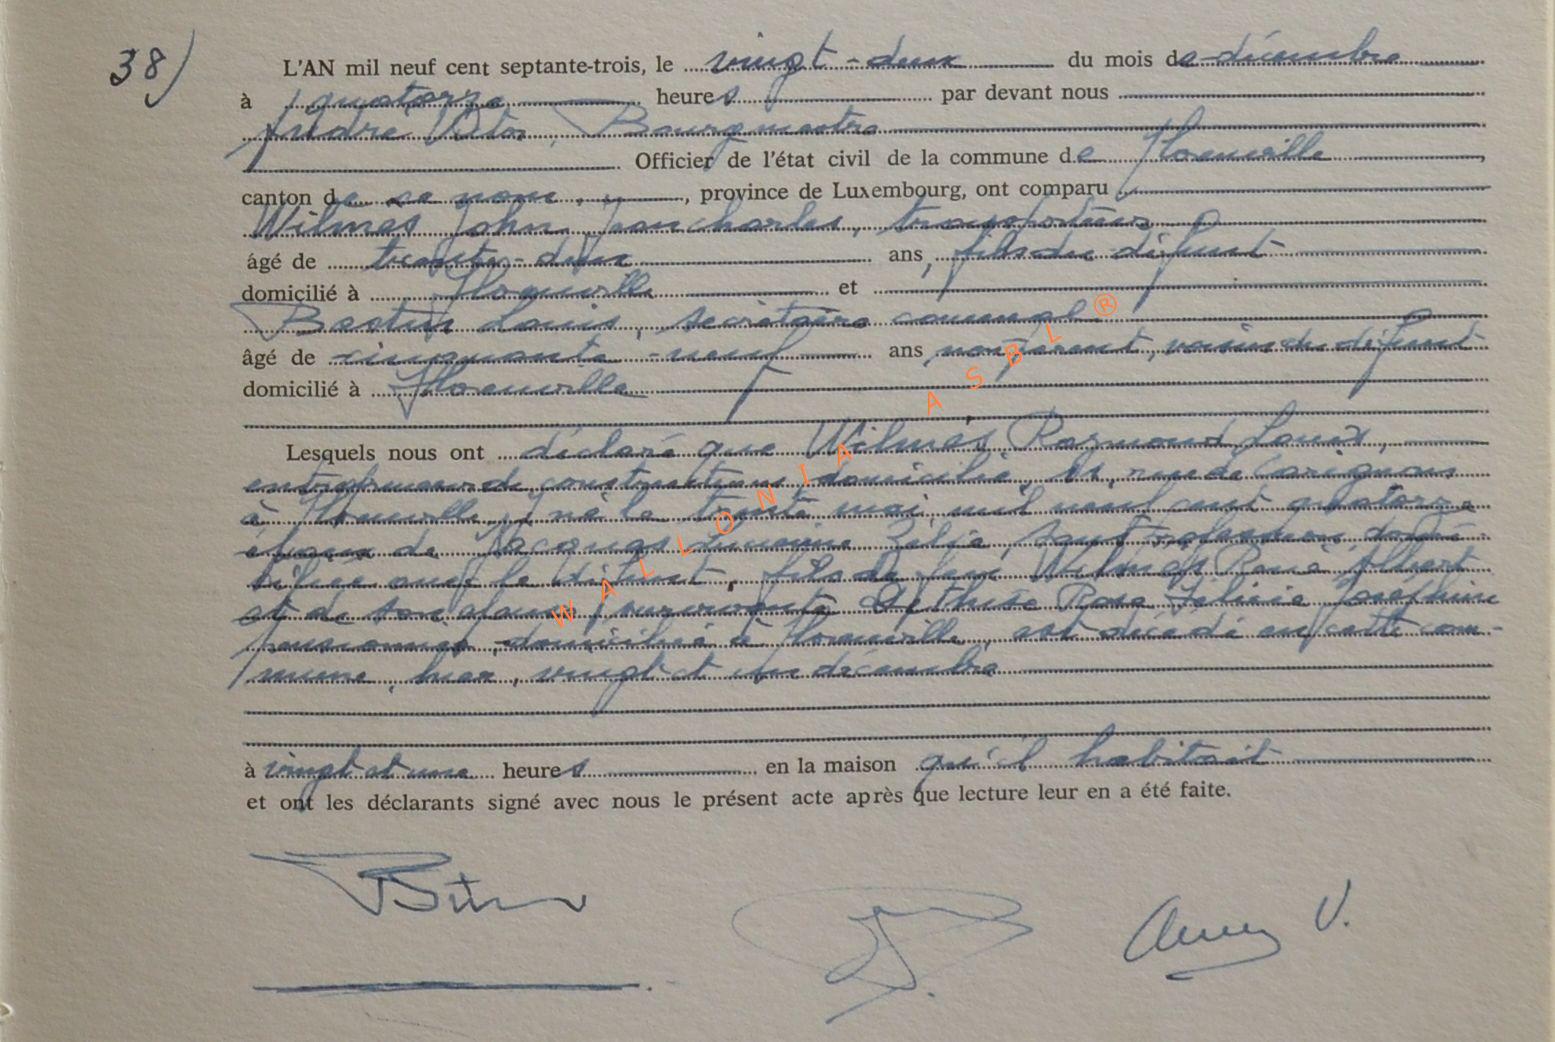 38)
L'AN mil neuf cent septante-trois, le vingt-deux du mois de décembre
à quatorze heures par devant nous
André Victor, Bourgmestre
Officier de l'état civil de la commune de Florenville
canton de ce nom, province de Luxembourg, ont comparu
Wilmes John Jean Charles, transporteur
âgé de trente-deux ans, fils du défunt
domicilié à Florenville et
Bastin Louis, secrétaire communal
âgé de cinquante-neuf ans non parent, voisin du défunt
domicilié à Florenville
Lesquels nous ont déclaré que Wilmes, Raymond Louis,
entrepreneur de constructions domicilié, rue de Carignan
à Florenville, né le trente mai mil neuf cent quatorze
époux de Jacques Zélie, sans profession, domi-
ciliée avec le défunt, fils de feu Wilmes René Albert
et de son épouse survivante Rose Félicie Joséphine
pensionnée, domiciliée à Florenville, est décédé en cette com-
mune, hier, vingt et un décembre
à vingt et une heures en la maison qu'il habitait
et ont les déclarants signé avec nous le présent acte après que lecture leur en a été faite.
WALLONIA ASBL ®
V.